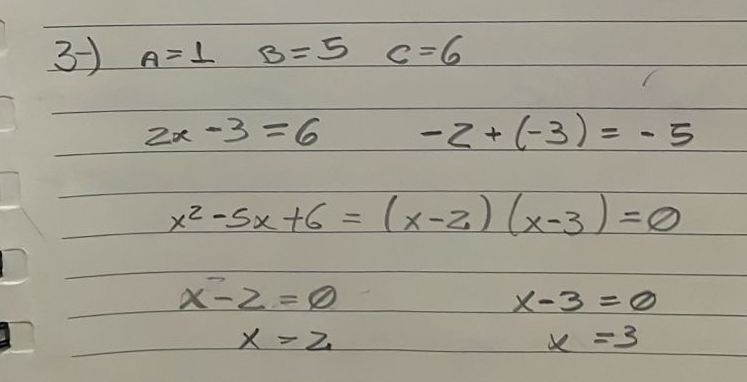 3-) A=1 B=5 C=6
2x-3=6 -2+(-3)=-5
x²-5x+6=(x-2)(x-3)=0
x-2=0 x-3=0
x=2 x=3